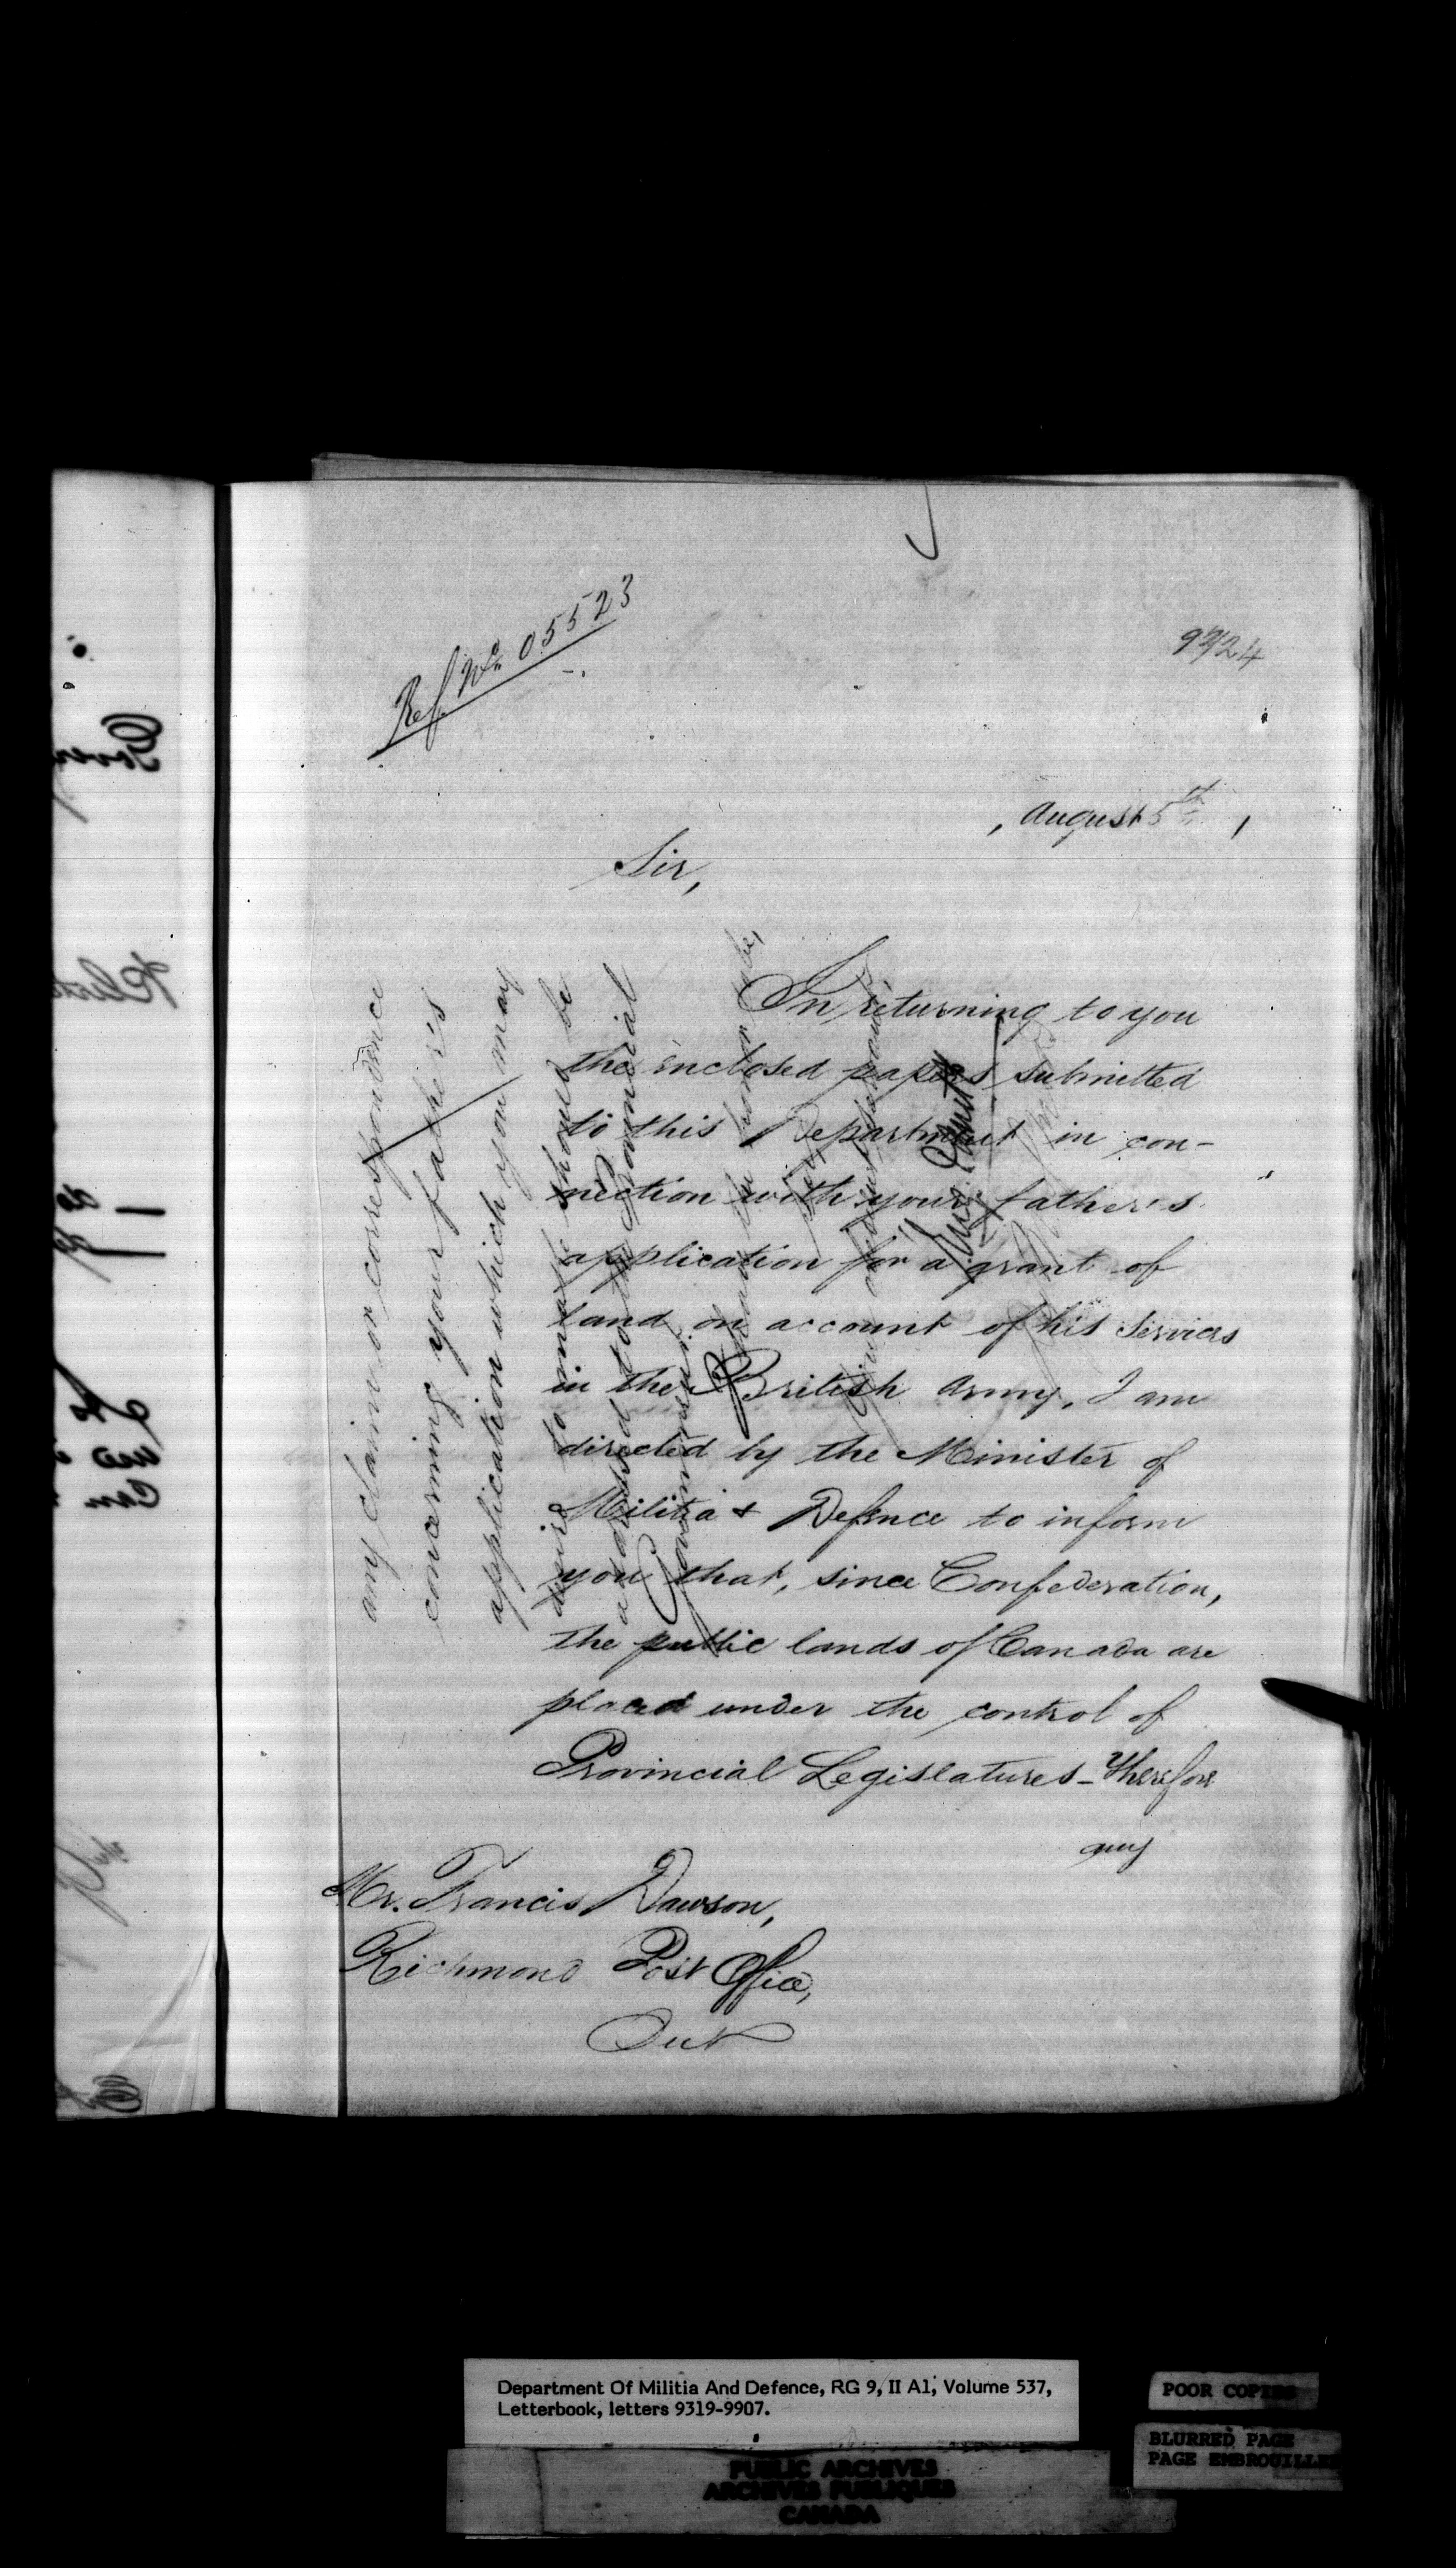 Ref. No. 05523
9724
, August 5th ,
Sir,
In returning to you
the enclosed papers submitted
to this Department in con-
nection with your father's
application for a grant of
land on account of his services
in the British Army, I am
directed by the Minister of
Militia & Defence to inform
you that, since Confederation,
the public lands of Canada are
placed under the control of
Provincial Legislatures - Therefore
any
Mr. Francis Dawson,
Richmond Post Office,
Ont
any claim or correspondence
concerning your father's
application which you may
desire to make should be
addressed to the Provincial
Government.
Sir,
Department Of Militia And Defence, RG 9, II A1, Volume 537,
Letterbook, letters 9319-9907.
POOR COPIES
BLURRED PAGE
PAGE EMBROUILLEE
PUBLIC ARCHIVES
ARCHIVES PUBLIQUES
CANADA